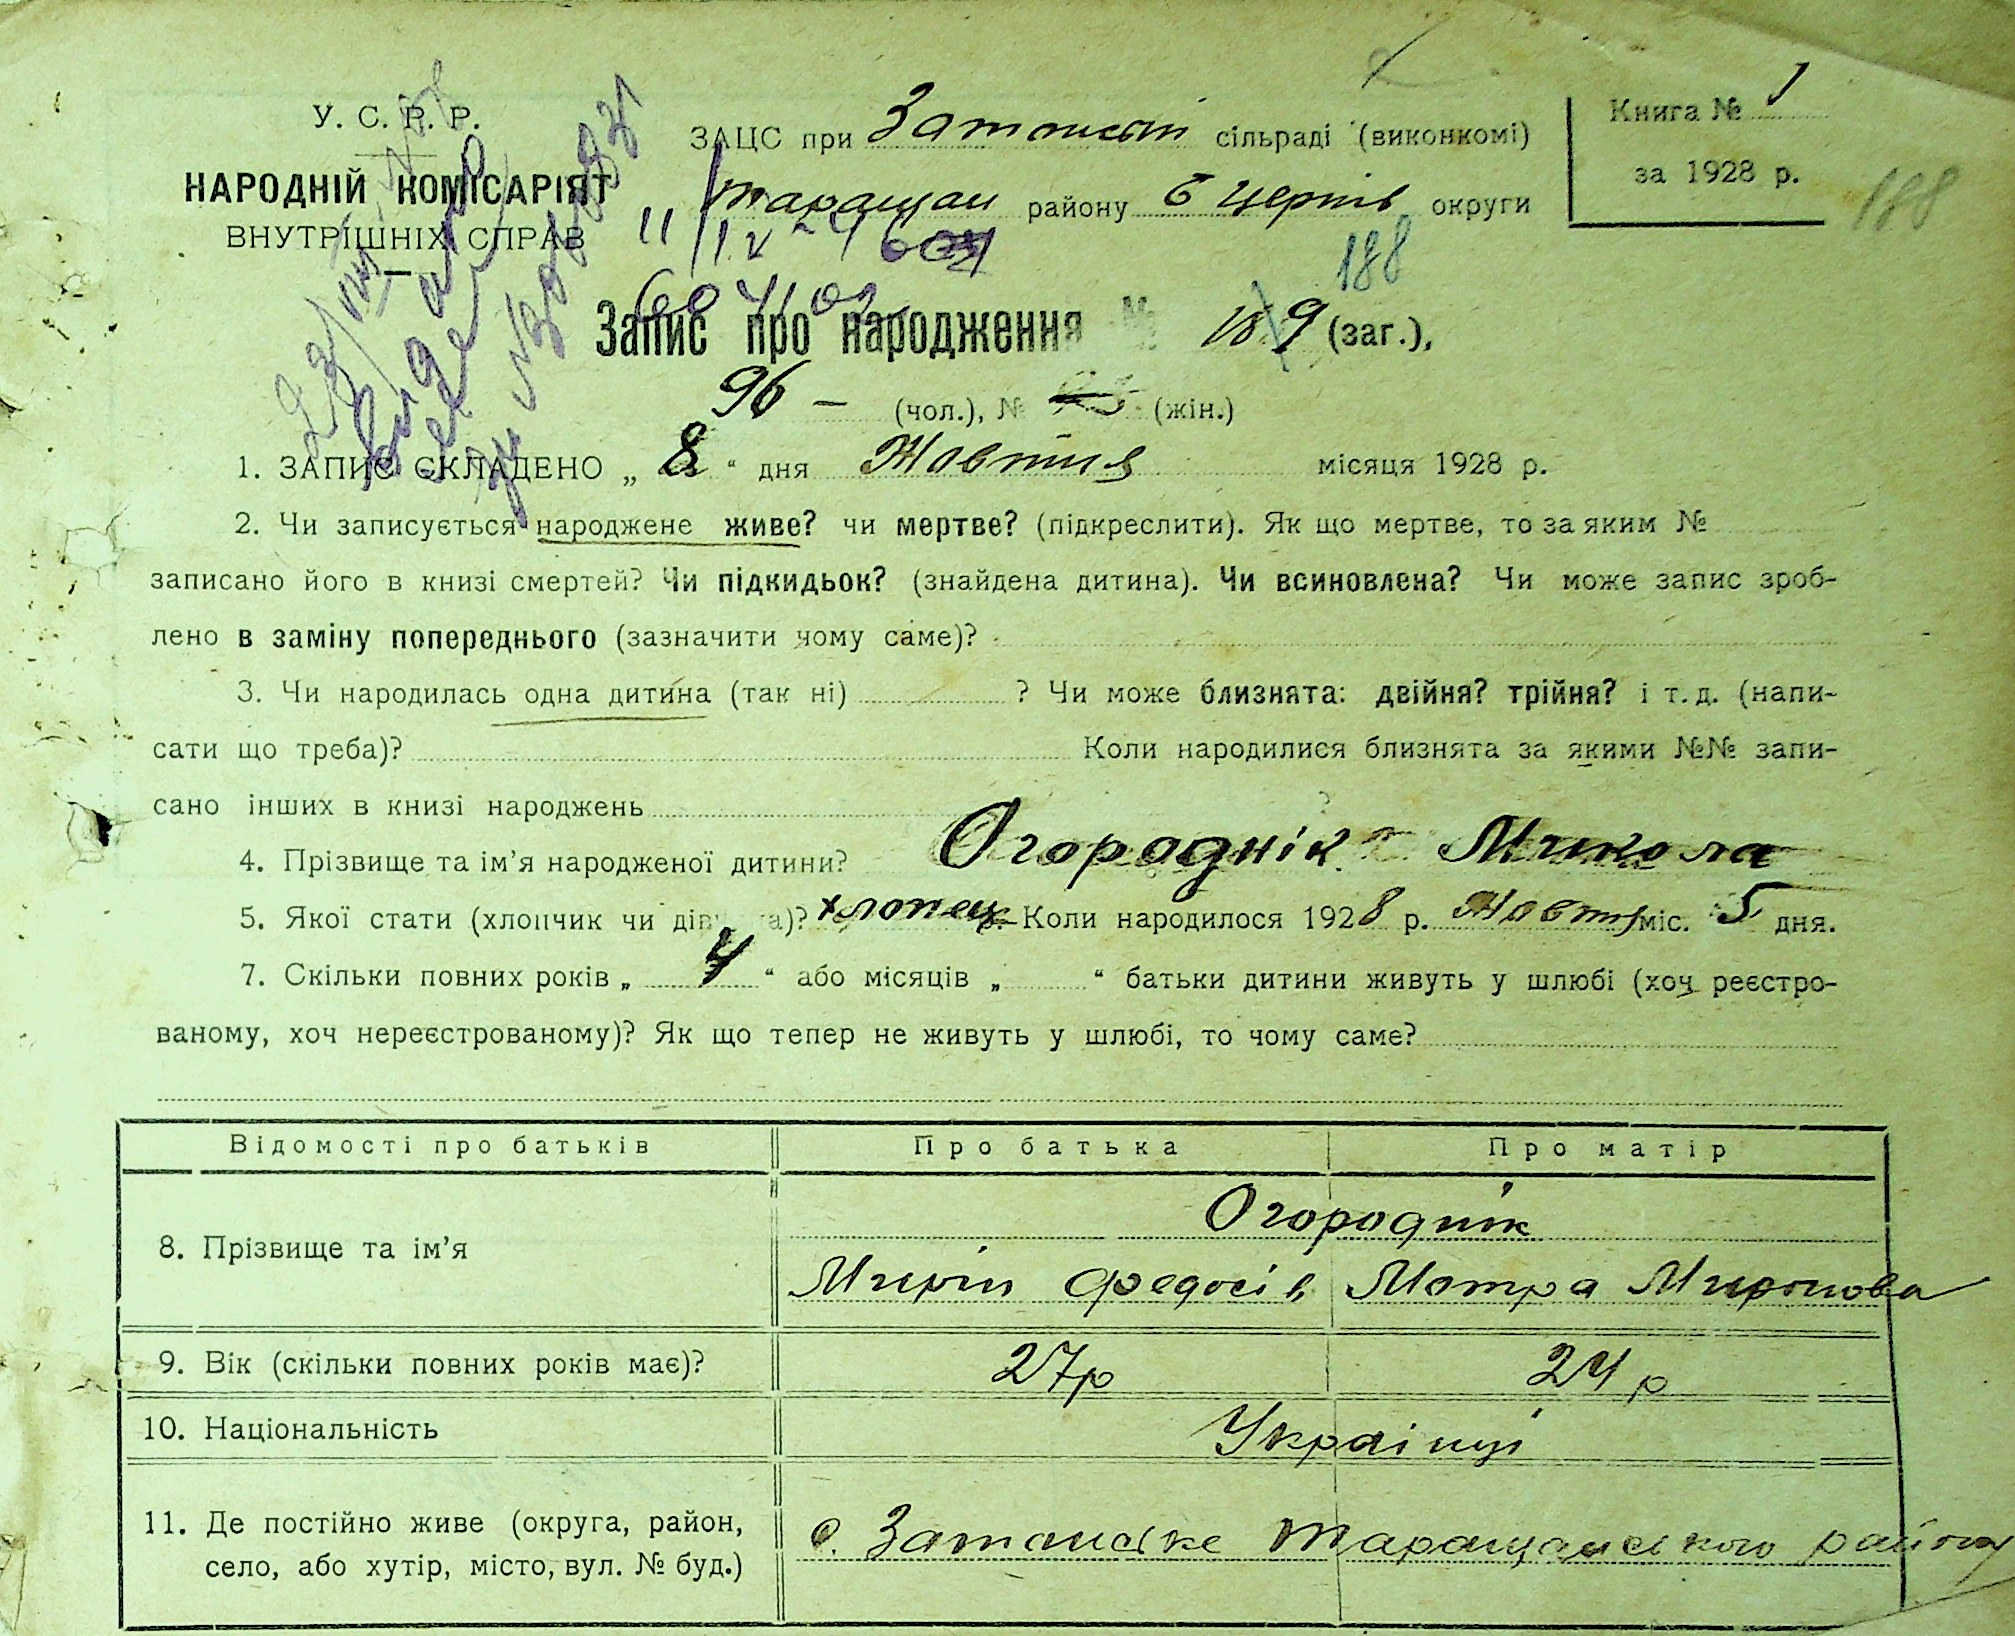 У. С. Р. Р.
НАРОДНІЙ КОМІСАРІЯТ
ВНУТРІШНІХ СПРАВ
ЗАЦС при сільраді (виконкомі)
Таращан району Б Церків округи
Книга № 1
за 1928 р.
188
188
Запис про народження № 189 (заг.),
96 — (чол.), № (жін.)
1. ЗАПИС СКЛАДЕНО „ 8 “ дня Жовтня місяця 1928 р.
2. Чи записується народжене живе? чи мертве? (підкреслити). Як що мертве, то за яким №
записано його в книзі смертей? Чи підкидьок? (знайдена дитина). Чи всиновлена? Чи може запис зроб-
лено в заміну попереднього (зазначити чому саме)?
3. Чи народилась одна дитина (так ні) ? Чи може близнята: двійня? трійня? і т. д. (напи-
сати що треба)? Коли народилися близнята за якими №№ запи-
сано інших в книзі народжень ?
4. Прізвище та ім’я народженої дитини? Огороднік Микола
5. Якої стати (хлопчик чи дівчина)? хлопець Коли народилося 1928 р. Жовтня міс. 5 дня.
7. Скільки повних років „ 4 “ або місяців „ “ батьки дитини живуть у шлюбі (хоч реєстро-
ваному, хоч нереєстрованому)? Як що тепер не живуть у шлюбі, то чому саме?
Відомості про батьків Про батька Про матір
8. Прізвище та ім’я Огороднік
Мирін Федосів Мотра Миронова
9. Вік (скільки повних років має)? 27р 24 р
10. Національність Українці
11. Де постійно живе (округа, район,
село, або хутір, місто, вул. № буд.)
с. Таращанського району